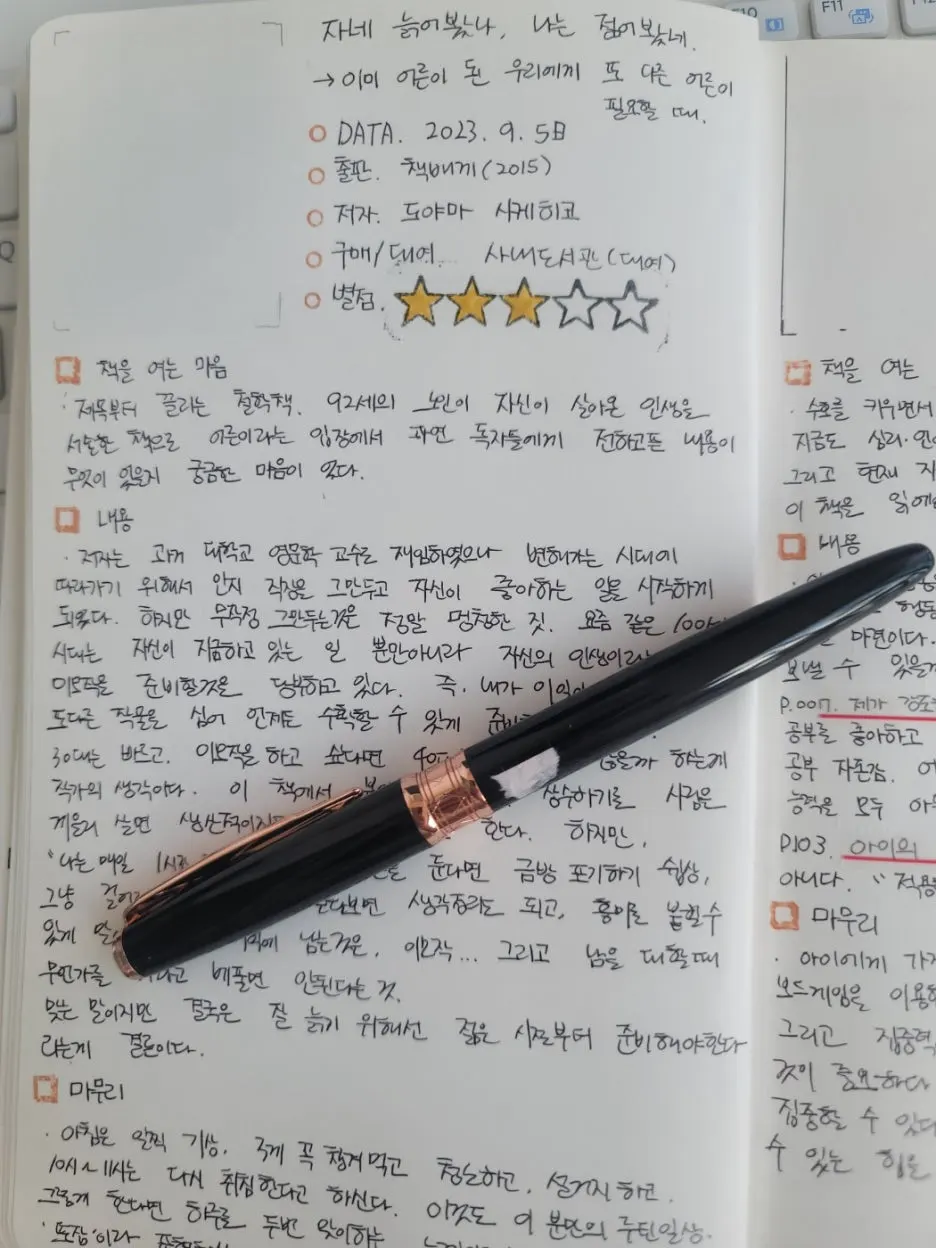 F11
자네 늙어봤나, 나는 젊어봤네.
→ 이미 어른이 된 우리에게 또 다른 어른이
필요할 때.
DATA. 2023. 9. 5日
출판. 책베개(2015)
저자. 도야마 시게히코
구매/대여. 사내도서관(대여)
별점.
책을 여는 마음
· 제목부터 끌리는 철학책. 92세의 노인이 자신이 살아온 인생을
서술한 책으로 어른이라는 입장에서 과연 독자들에게 전하고픈 내용이
무엇이 있을지 궁금한 마음이 있다.
내용
· 저자는 과거 대학교 영문학 교수로 재임하였으나 변해가는 시대에
따라가기 위해서 안지 직장은 그만두고 자신이 좋아하는 일을 시작하게
되었다. 하지만 무작정 그만두는것은 정말 멍청한 짓. 요즘 같은 100세
시대는 자신이 지금하고 있는 일 뿐만아니라 자신의 인생이라
이모작을 준비할것을 당부하고 있다. 즉, 내가
또다른 작물을 심어 언제든 수확할 수 있게 준비
30대는 바쁘고. 이모작을 하고 싶다면 40 않을까 하는게
작가의 생각이다. 이 책에서 사람은
게을리 살면 생산적이지 한다. 하지만,
"나는 매일 1시 둔다면 금방 포기하기 쉽상,
그냥 걸어 보면 생각정리도 되고, 흥미를 붙힐수
있게 남는것은, 이모작... 그리고 남을 대할때
무언가를 베풀면 안된다는 것.
맞는 말이지만 결국은 잘 늙기 위해선 젊은 시절부터 준비해야한다
라는게 결론이다.
마무리
· 아침은 일찍 기상, 국게 꼭 챙겨먹고 청소하고, 설거지 하고.
10시~11시는 다시 취침한다고 하신다. 이것도 이 분만의 루틴일상.
그렇게 한다면 하루를 두번 맞이하는
책을 여는
· 수호를 키우면서
지금도 심리·인
그리고 현재 지
이 책을 읽에
내용
마련이다.
보낼 수 있을
P.007. 제가
공부를 좋아하고
공부 자존감. 어
능력을 모두
P103. 아이의
아니다. " 적용
마무리
· 아이에게 가
보드게임을 이용
그리고 집중력
것이 중요하다
집중할 수 있다
수 있는 힘은